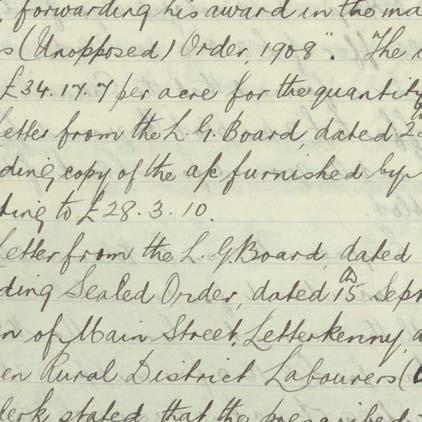 forwarding his award in the ma
s (Unopposed) Order, 1908". "The
£34.17.7 per acre for the quantity
Letter from the L. G. Board, dated 2
ding copy of the a/c furnished by
ting to £28.3.10.
Letter from the L. G. Board, dated
ding Sealed Order, dated 15th Sepr
n of Main Street, Letterkenny, a
en Rural District Labourers (
lerk stated that the prescribed